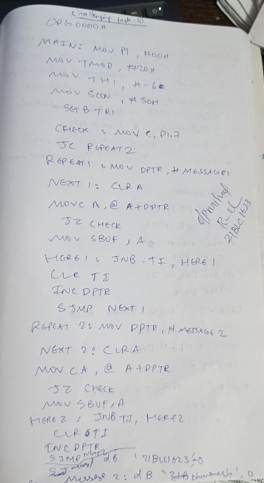 Challenging task-10
ORG 0000H
MAIN: MOV P1, #00H
MOV TMOD, #20H
MOV TH1, #-6
MOV SCON, #50H
SETB TR1
CHECK: MOV C, P1.7
JC REPEAT2
REPEAT1: MOV DPTR, #MESSAGE1
NEXT1: CLR A
MOVC A, @ A+DPTR
JZ CHECK
MOV SBUF, A
HERE1: JNB TI, HERE1
CLR TI
INC DPTR
SJMP NEXT1
REPEAT 2: MOV DPTR, #MESSAGE2
NEXT 2: CLR A
MOV CA, @ A+DPTR
JZ CHECK
MOV SBUF, A
HERE2: JNB TI, HERE2
CLR TI
INC DPTR
SJMP
dB '21BLC1623', 0
Message 2: dB , 0
21BLC1623